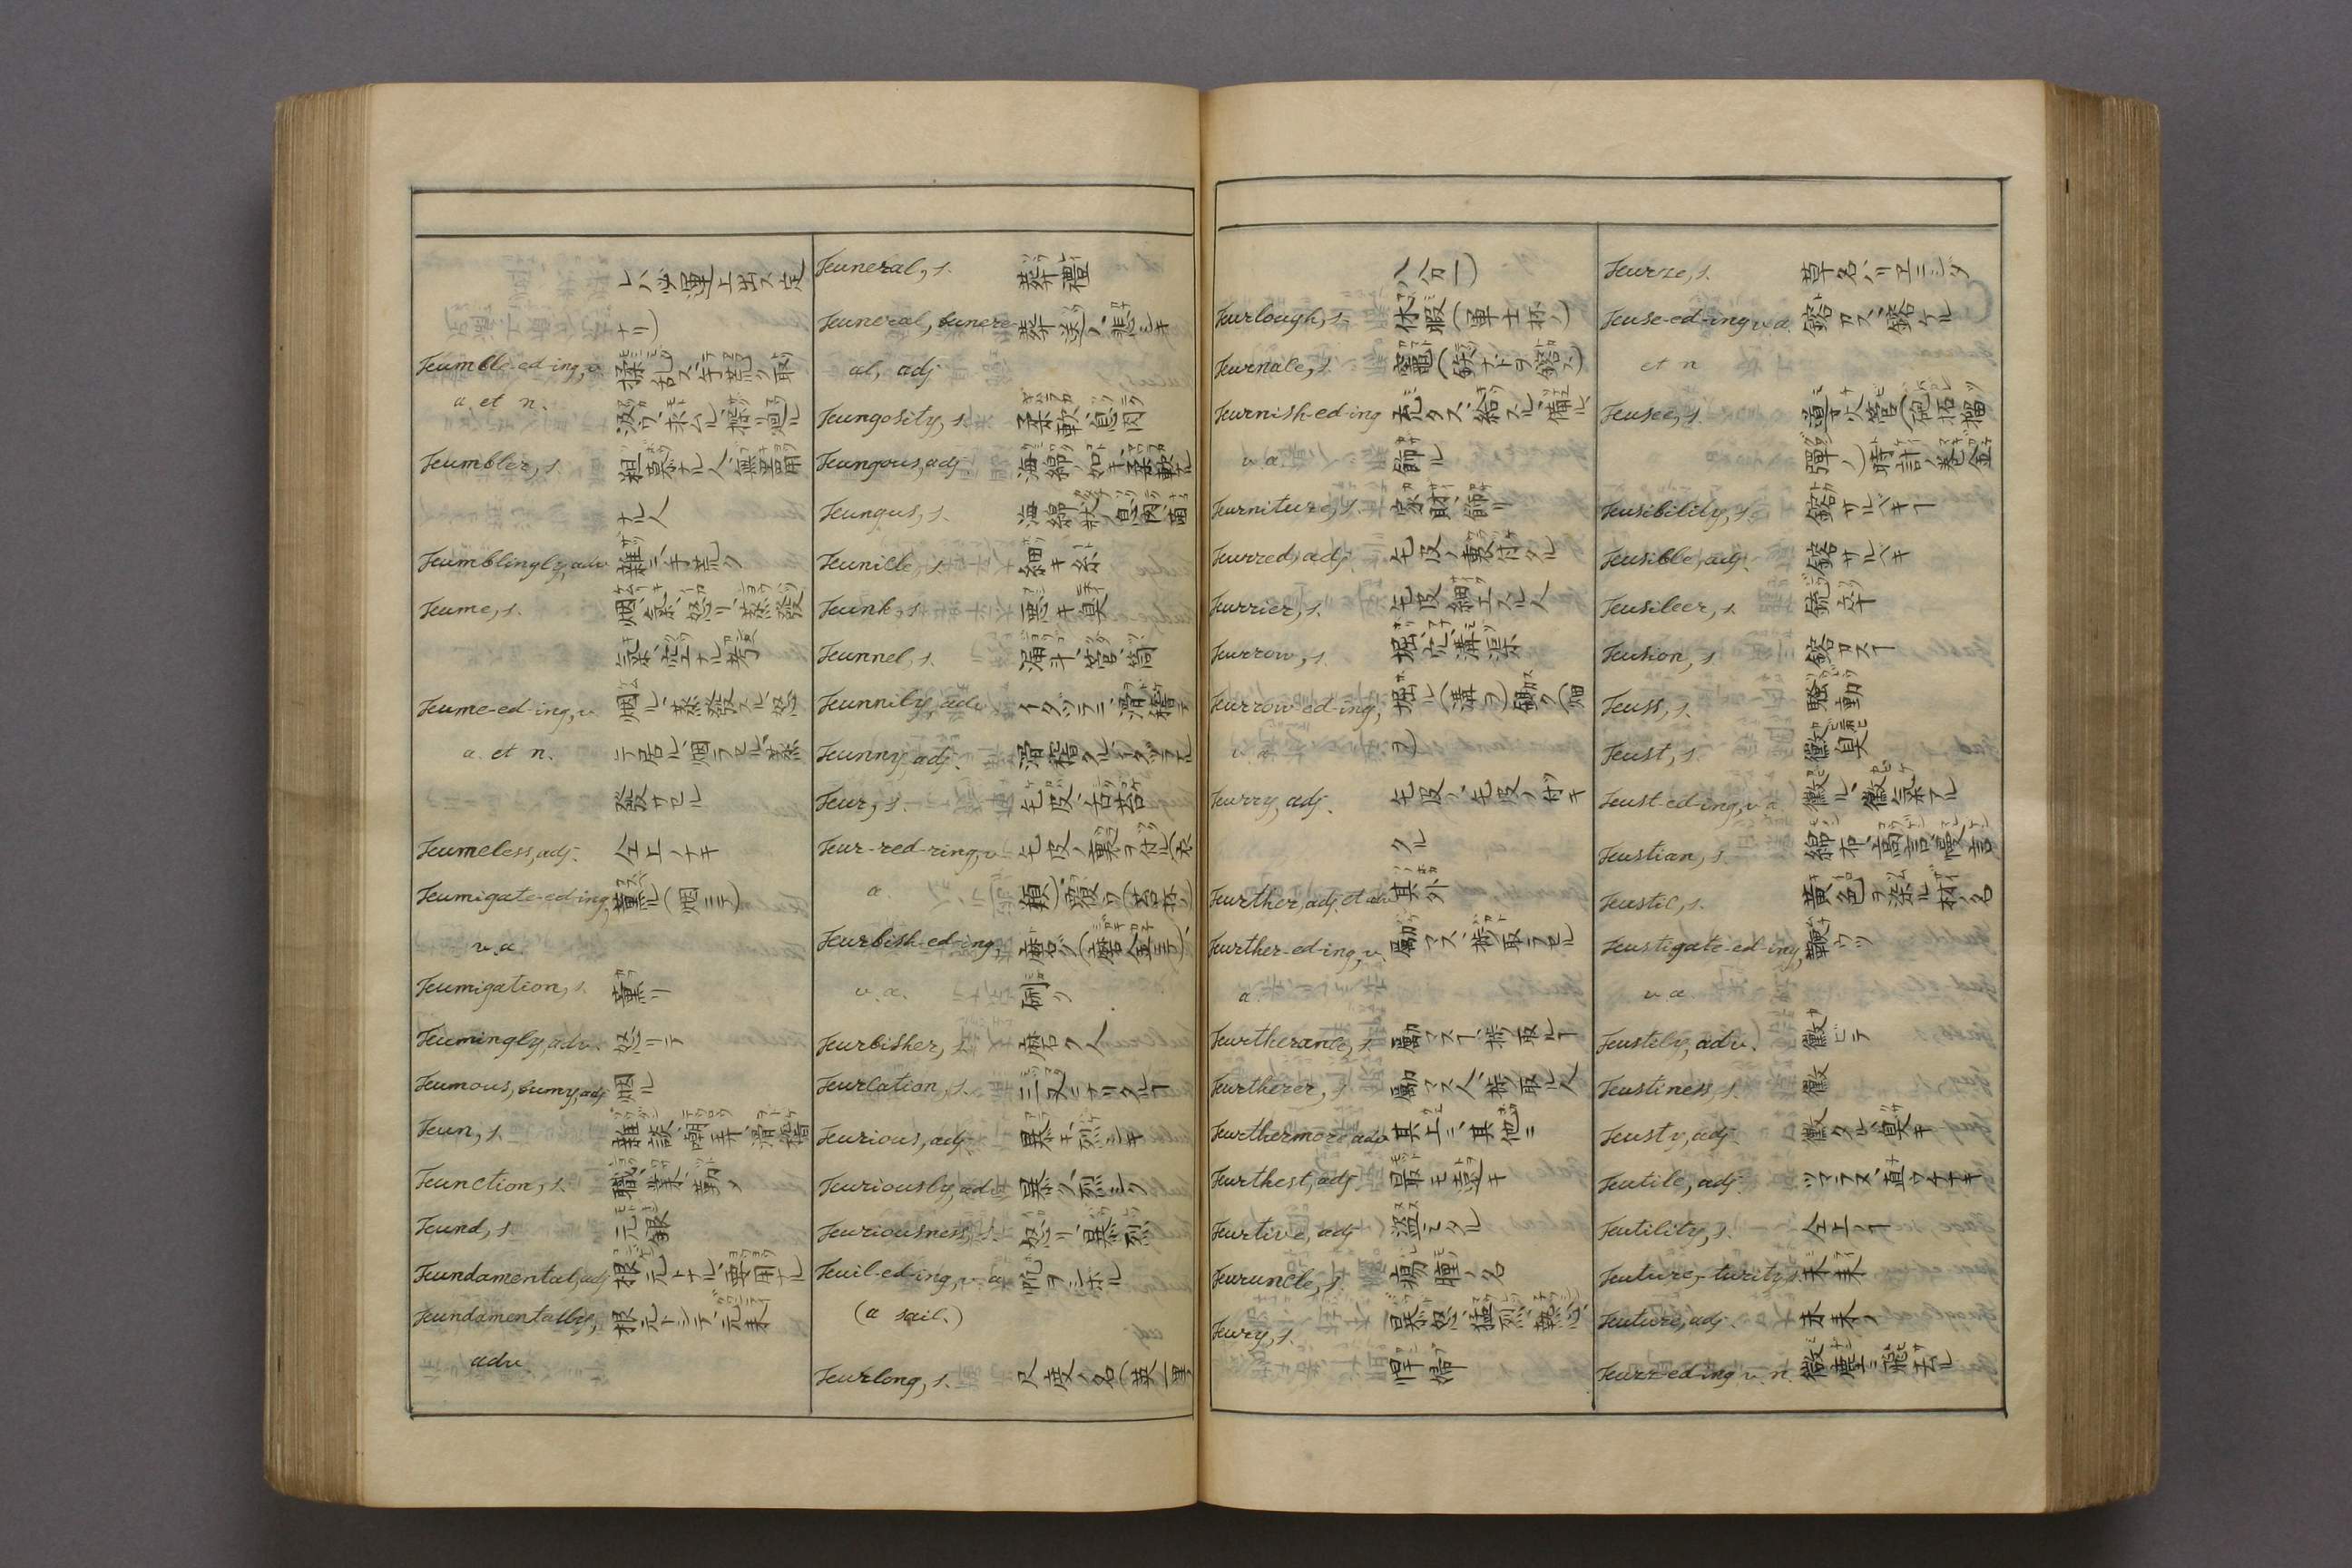 レハ必運上出ス定
ナリ)
Fumble-ed-ing, v. 揉ミ乱ス、手荒ク取
a. et n. 扱ウ、求ムル、搭リ廻ル
Fumbler, s. 粗暴ナル人、無器用
ナル人
Fumblingly, adv. 雑ニ、手荒ク
Fume, s. 烟、氣、怒リ、蒸發
氣、空ナル考
Fume-ed-ing, v. 烟ル、蒸發スル、怒
a. et n. テ居ル、烟ラセル、蒸
發サセル
Fumeless, adj. 仝上ノナキ
Fumigate-ed-ing, 薫ル(烟ニテ)
v. a.
Fumigation, s. 薫リ
Fumingly, adv. 怒リテ
Fumous, fumy, adj 烟ル
Fun, s. 雜談、嘲弄、滑稽
Function, s. 職業、勤
Fund, s. 元銀
Fundamental, adj 根元トナル、要用ナル
Fundamentally, 根元トシテ、元来
adv.
Funeral, s. 葬禮
Funeral, funere- 葬送ノ、悲シキ
al, adj
Fungosity, s. 柔軟、息肉
Fungous, adj. 海綿ノ如キ、柔軟ナル
Fungus, s. 海綿状ノ息肉、菌
Funicle, s. 細キ糸
Funk, s. 悪キ臭
Funnel, s. 漏斗、管、筒
Funnily, adv. イタヅラニ、滑稽ニテ
Funny, adj. 滑稽タル、イタヅラナル
Fur, s. 毛皮、舌苔
Fur-red-ring, v. 毛皮ノ裏ヲ付ル(衣
a. 類)
Furbish-ed-ing, 磨ク(磨金ニテ)、
v. a. 研ク
Furbisher, s. 磨ク人
Furcation, s. 二叉ニナリタルヿ
Furious, adj. 暴キ、烈シキ
Furiously, adv. 暴ク、烈シク
Furiousness, s. 怒リ、暴烈
Furl-ed-ing, v. a. 帆ヲシボル
(a sail.)
Furlong, s. 尺度ノ名(英一里
八分一)
Furlough, s. 休暇(軍士抔ノ)
Furnace, s. 竈(鉄ナドヲ鎔ス)
Furnish-ed-ing 充タス、給スル、備ル、
v. a. 飾ル
Furniture, s. 家財、飾リ
Furred, adj. 毛皮ノ裏付タル
Furrier, s. 毛皮細工スル人
Furrow, s. 堀、穴、溝渠
Furrow-ed-ing, 堀ル(溝ヲ)
v. a.
Furry, adj. 毛皮ノ、毛皮ノ付キ
タル
Further, adj. et adv. 其外
Further-ed-ing, v. 勵マス、
a.
Furtherance, s. 勵マスヿ、
Furtherer, s. 勵マス人、
Furthermore adv. 其上ニ、其他ニ
Furthest, adj. 最モ遠キ
Furtive, adj 盗ミタル
Furuncle, s. 瘍腫ノ名
Fury, s. 暴怒、猛烈、熱心、
悍婦
Furze, s. 草名
Fuse-ed-ing v. a. 鎔カス、鎔ケル
et n
Fusee, s. 導火管(炮柘榴
彈ノ)時計ノ巻金
Fusibility, s. 鎔サルベキヿ
Fusible, adj. 鎔サルベキ
Fusileer, s. 銃卒
Fusion, s. 鎔カスヿ
Fuss, s. 騒動
Fust, s. 黴臭
Fust-ed-ing, v. n. 黴ル、黴氣アル
Fustian, s. 綿布、高言、慢言
Fustic, s. 黄色ヲ染ル材ノ名
Fustigate-ed-ing, 鞭ウツ
v. a.
Fustily, adv. 黴ビテ
Fustiness, s. 黴
Fusty, adj. 黴タル、臭キ
Futile, adj. ツマラヌ、直ウチナキ
Futility, s. 仝上ノヿ
Future, -turity, s. 未来
Future, adj. 未来ノ
Fuzz-ed-ing v. n. 微塵ニ飛去ル